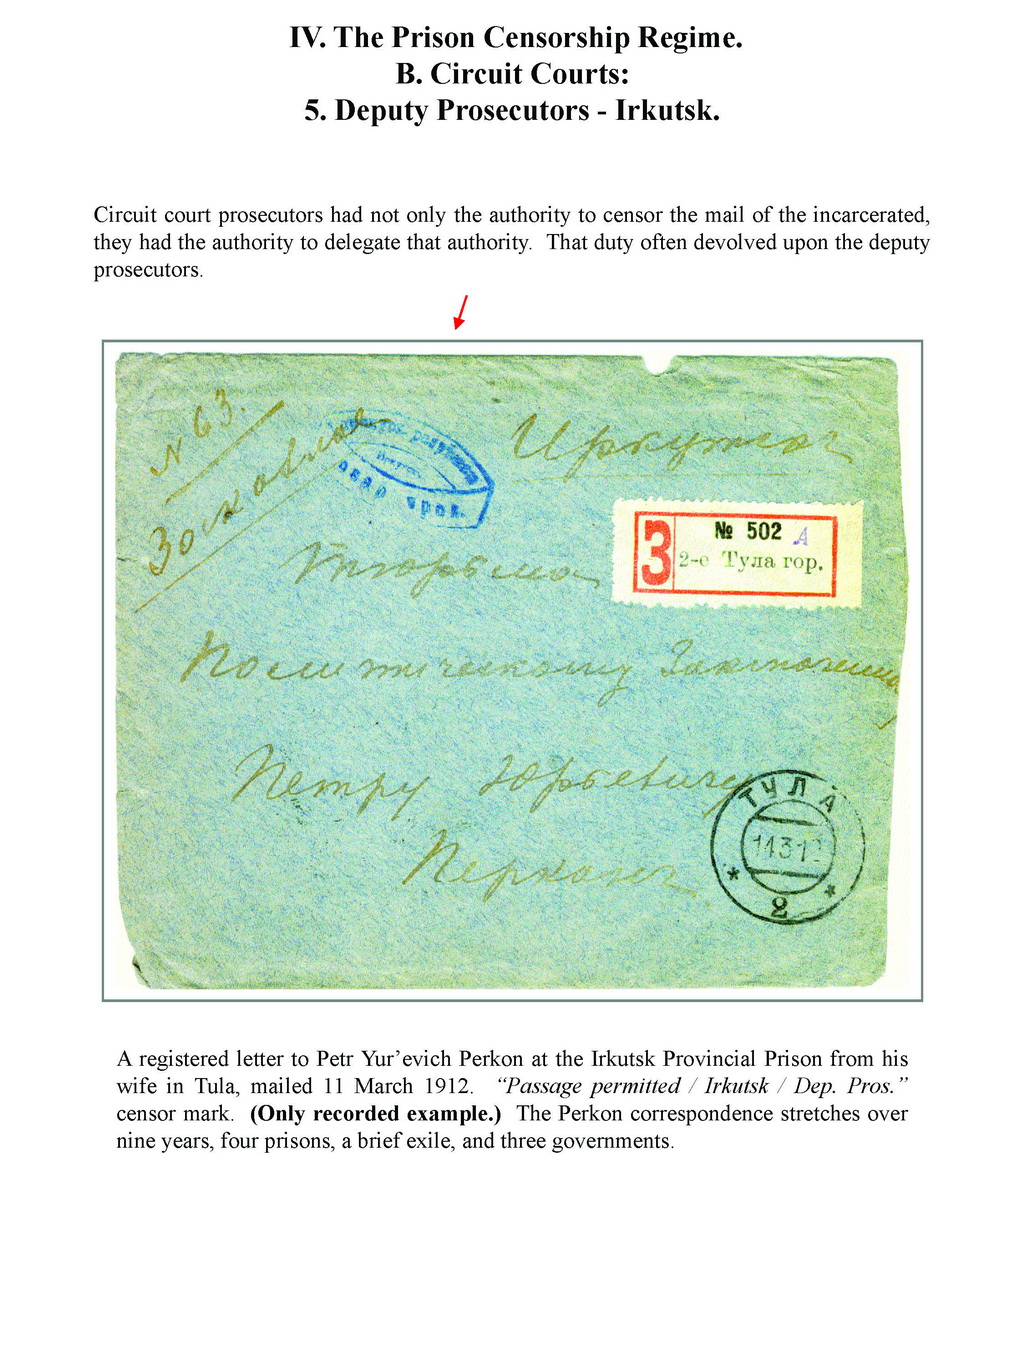 IV. The Prison Censorship Regime.
B. Circuit Courts:
5. Deputy Prosecutors - Irkutsk.
Circuit court prosecutors had not only the authority to censor the mail of the incarcerated,
they had the authority to delegate that authority. That duty often devolved upon the deputy
prosecutors.
N 63.
Заказное
Иркутскъ
№ 502 А
З
2-е Тула гор.
Тюрьма
Политическому
Петру Юрьевичу
Перконъ
ТУЛА
11312
2
A registered letter to Petr Yur’evich Perkon at the Irkutsk Provincial Prison from his
wife in Tula, mailed 11 March 1912. “Passage permitted / Irkutsk / Dep. Pros.”
censor mark. (Only recorded example.) The Perkon correspondence stretches over
nine years, four prisons, a brief exile, and three governments.